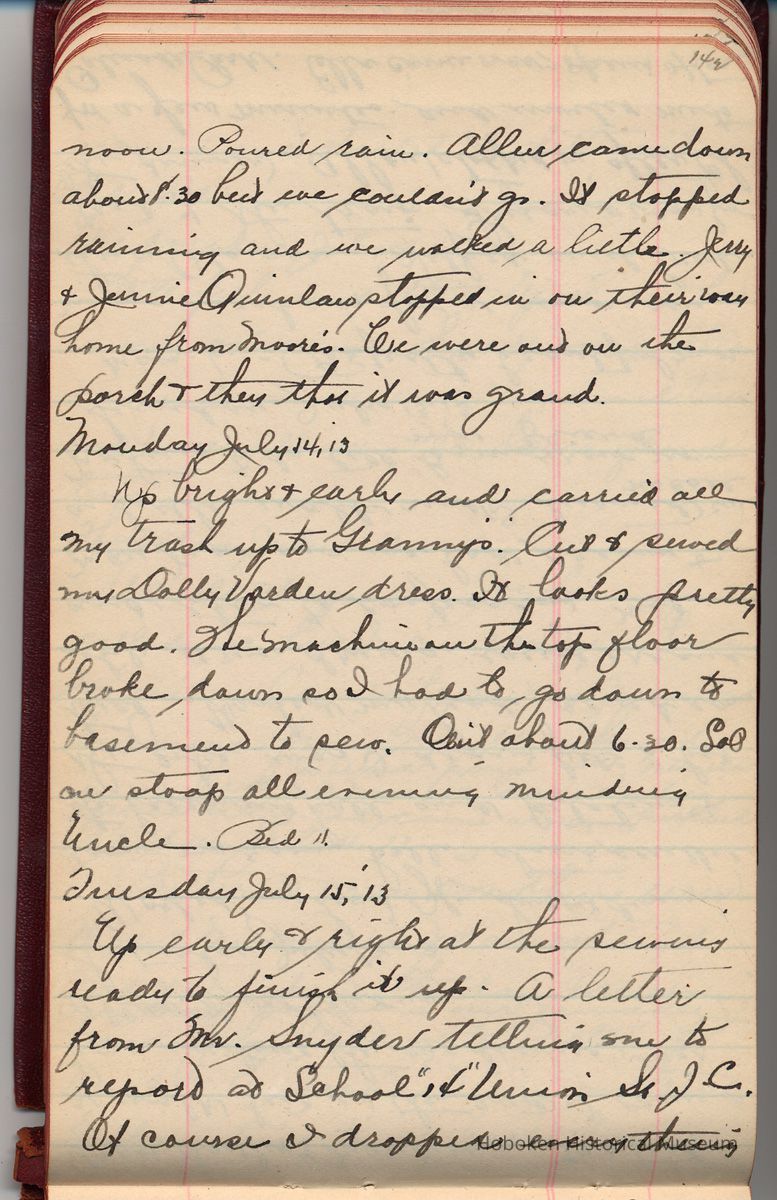 142
noon. Poured rain. Aller came down
about 8.30 but we couldn't go. It stopped
raining and we walked a little. Jerry
& Jennie Quinlan stopped in on their way
home from Moore's. We were out on the
porch & they thot it was grand.
Monday July 14, 13
Up bright & early and carried all
my trash up to Granny's. Cut & sewed
my Dolly Varden dress. It looks pretty
good. The machine on the top floor
broke down so I had to go down to
basement to sew. Quit about 6.30. Sat
on stoop all evening minding
Uncle. Bed 11.
Tuesday July 15, '13
Up early & right at the sewing
ready to finish it up. A letter
from Mr. Snyder telling me to
report at School "14" Union St. J.C.
Of course I dropped everything
Hoboken Historical Museum